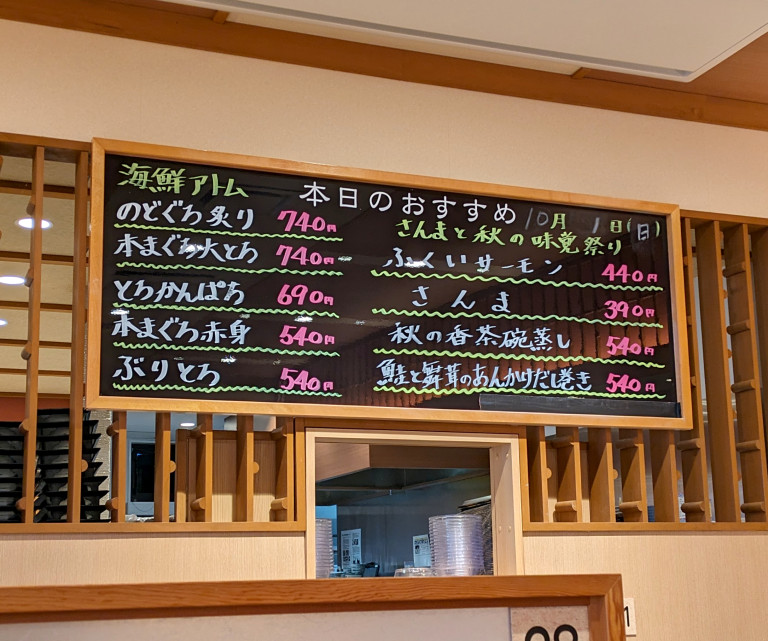 本日のおすすめ
10月 1日(日)
海鮮アトム
のどぐろ炙り 740円
本まぐろ大とろ 740円
とろかんぱち 690円
本まぐろ赤身 540円
ぶりとろ 540円
さんまと秋の味覚祭り
ふくいサーモン 440円
さんま 390円
秋の香茶碗蒸し 540円
鮭と舞茸のあんかけだし巻き 540円